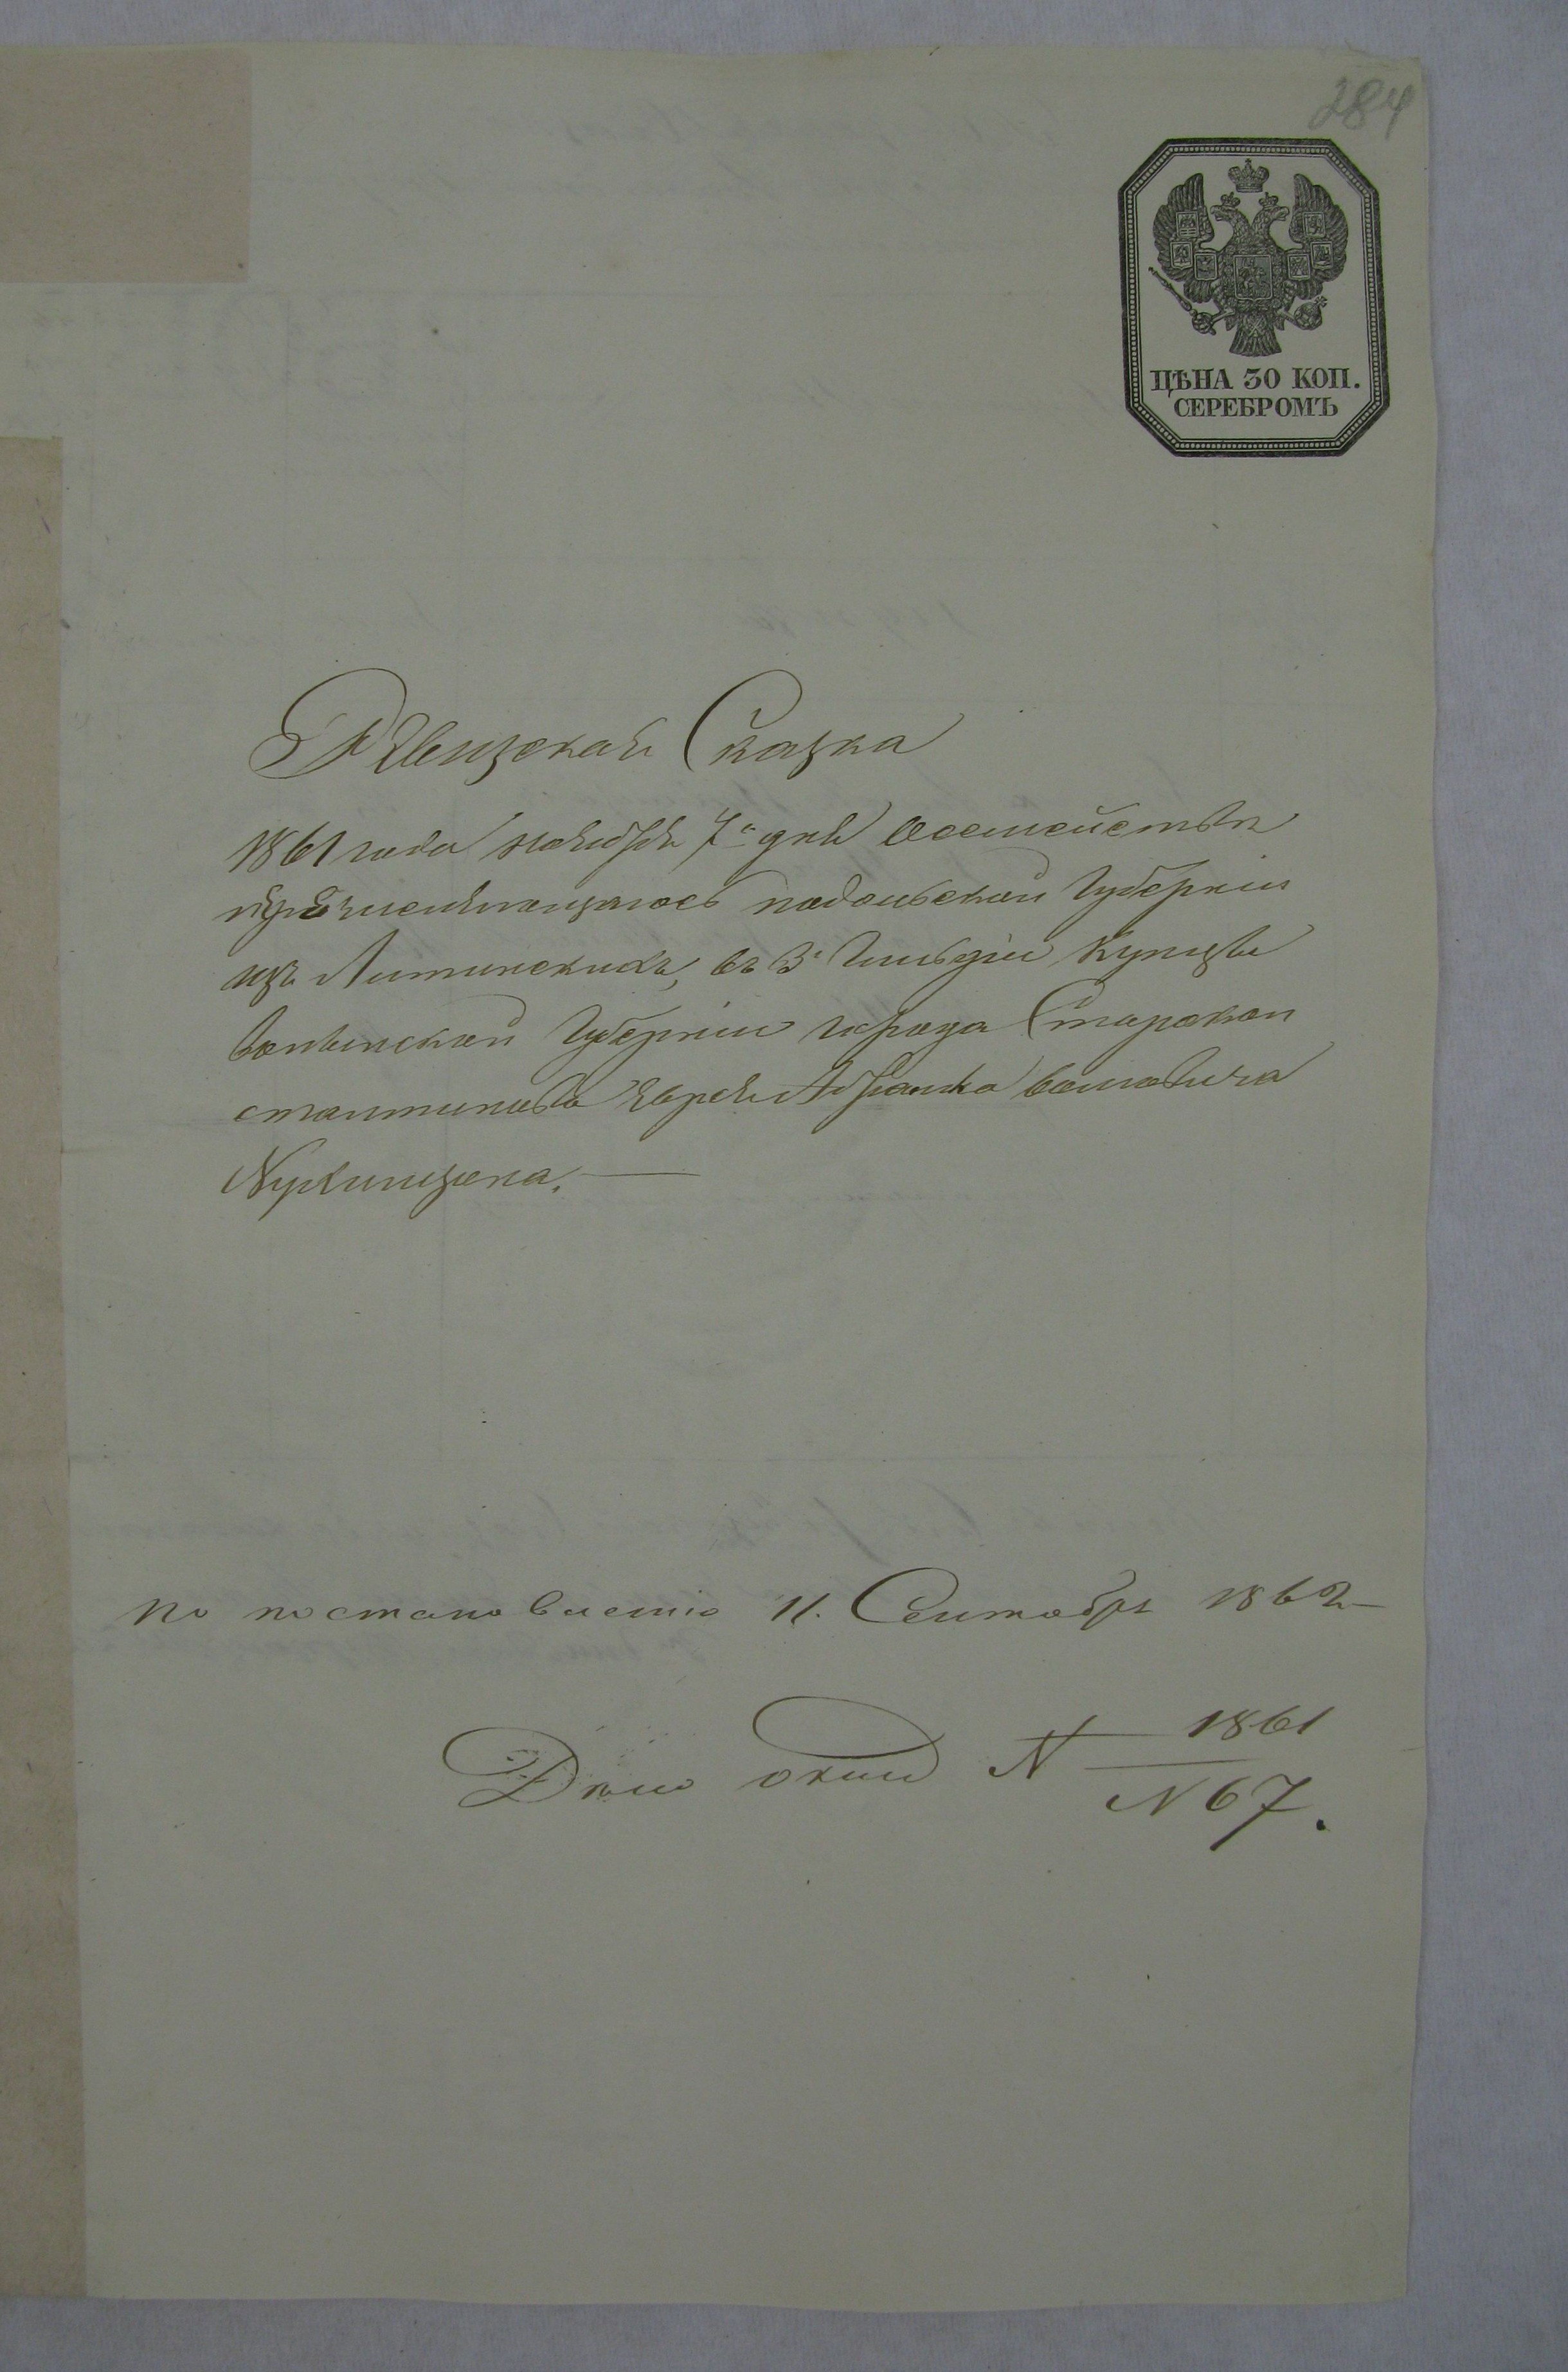 284
ЦѢНА 30 КОП.
СЕРЕБРОМЪ
Ревизская Сказка
1861 года ноября 7го дня О семействѣ
перечисляющагось подольской Губерніи
изъ Литинскихъ, въ 3й Гильдіи Купцы
волынской Губерніи города Старокон
стантинова Еврея Абрамка вольковича
по постановленію 11. Сентября 1862
Дѣло окии N 1861
N 67.